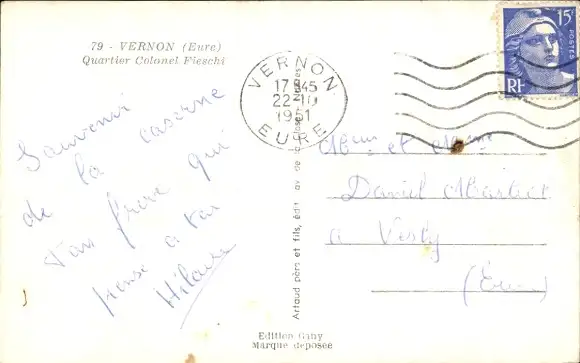 79 - VERNON (Eure)
Quartier Colonel Fieschi
Souvenir
de la caserne
ton frère qui
pense a toi
Hilaire
VERNON
17 45
22-10
1951
EURE
15f
POSTES
RF
et
Daniel
a Vesly
(Eure)
Artaud père et fils, édit
Edition Gaby
Marque déposée